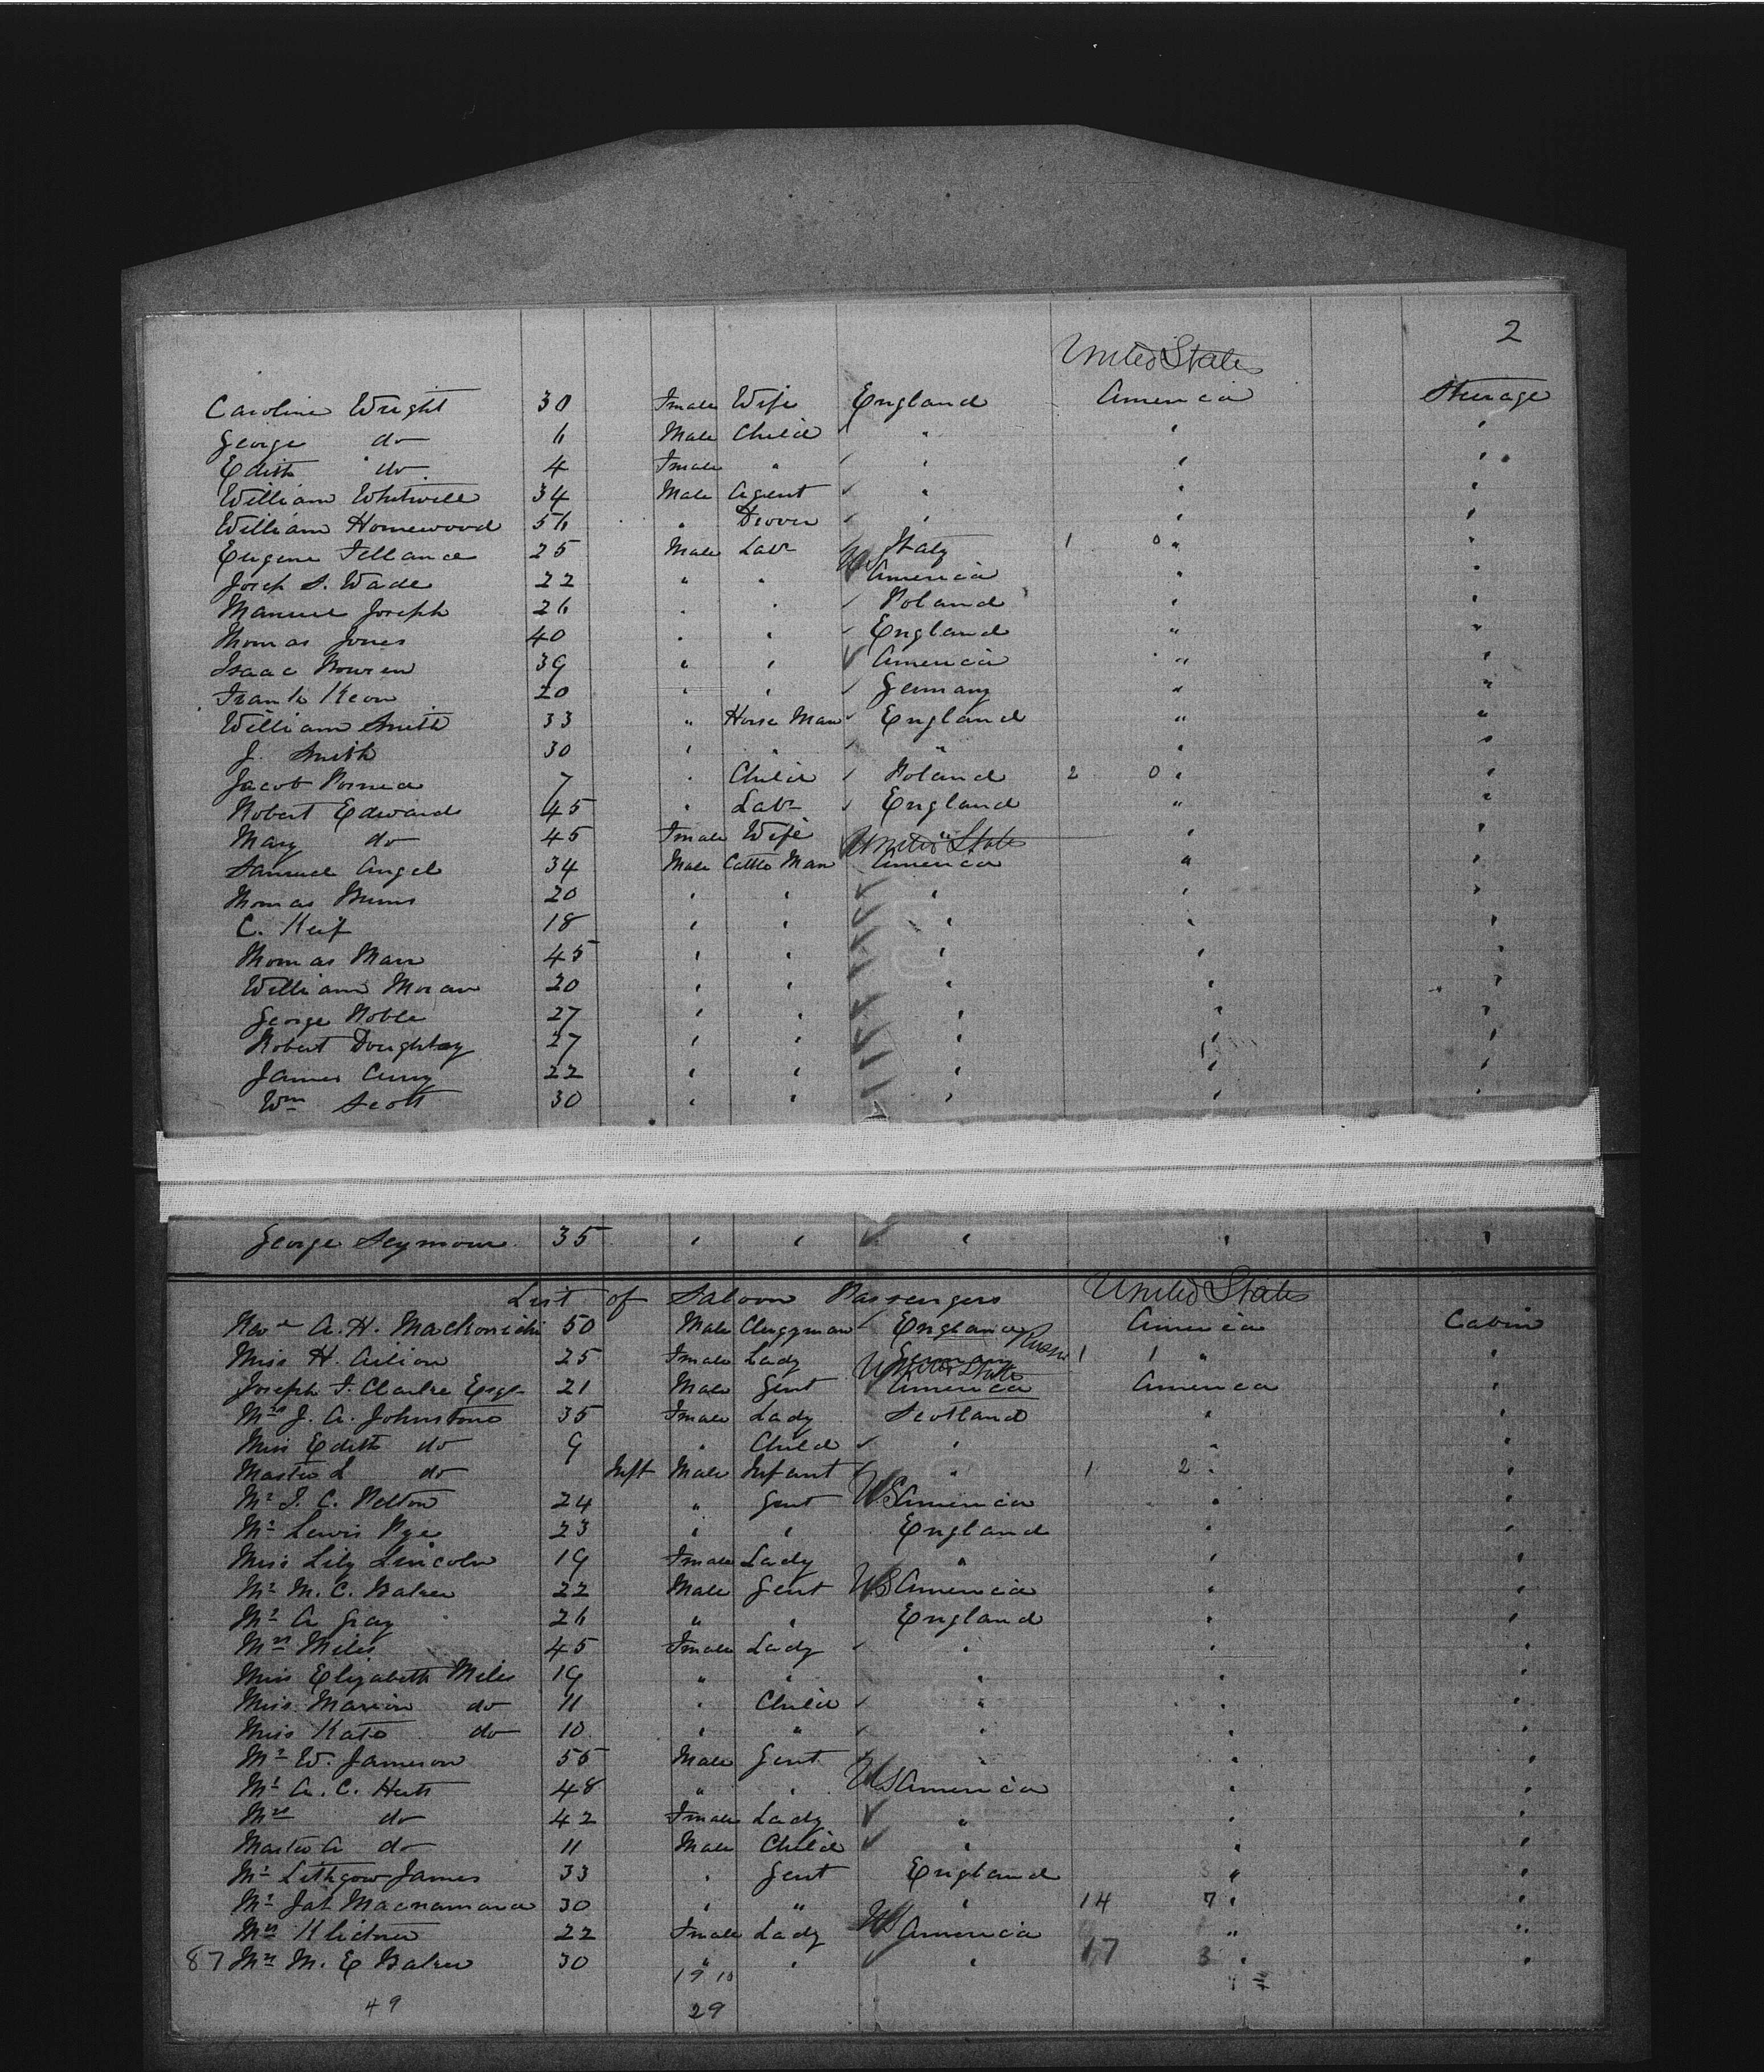 2
United States
Caroline Wright 30 Female Wife England America Steerage
George do 6 Male Child " " "
Edith do 4 Female " " " "
William Whitwill 34 Male Agent " " "
William Homewood 56 " Drover " " "
Eugene 25 Male Labr Italy 1 0 " "
Joseh S. Wade 22 " " US America " "
Manuel Joseph 26 " " Poland " "
Thomas Jones 40 " " England " "
Isaac 39 " " America " "
Frank Keon 20 " " Germany " "
William Smith 33 " Horse Man England " "
J. Smith 30 " " " " "
Jacob 7 " Child Poland 2 0 " "
Robert Edward 45 " Labr England " "
Mary do 45 Female Wife " " "
United States
Samuel Angel 34 Male Cattle Man America " "
Thomas 20 " " " " "
C. Keif 18 " " " " "
Thomas Marr 45 " " " " "
William Moran 20 " " " " "
George Noble 27 " " " " "
Robert Doughtey 27 " " " " "
James Curry 22 " " " " "
Wm Scott 30 " " " " "
George Seymour 35 " " " " "
List of Saloon Passengers United States
Revd A. H. Mackonichi 50 Male Clergyman England America Cabin
Miss H. Ailion 25 Female Lady Germany Russia 1 1 " "
United States
Joseph T. Clarke Esqr 21 Male Gent America America "
Mrs J. A. Johnstone 35 Female Lady Scotland " "
Miss Edith do 9 " Child " " "
Master L do Inft Male Infant " 1 2 " "
Mr I. C. Pelton 24 " Gent US America " "
Mr Lewis Pye 23 " " England " "
Miss Lily Lincoln 19 Female Lady " " "
Mr M. C. Baker 22 Male Gent US America " "
Mr A Gray 26 " " England " "
Mrs Miles 45 Female Lady " " "
Miss Elizabeth Miles 19 " " " " "
Miss Marion do 11 " Child " " "
Miss Kate do 10 " " " " "
Mr W. Jameson 55 Male Gent " " "
Mr A. C. Huth 48 " " US America " "
Mrs do 42 Female Lady " " "
Master A do 11 Male Child " " "
Mr Lithgow James 33 " Gent England " "
Mr Jas Macnamara 30 " " " 14 7 " "
Mrs 22 Female Lady US America " "
87 Mrs M. E Baker 30 " " " 17 3 " "
19 10
49 29